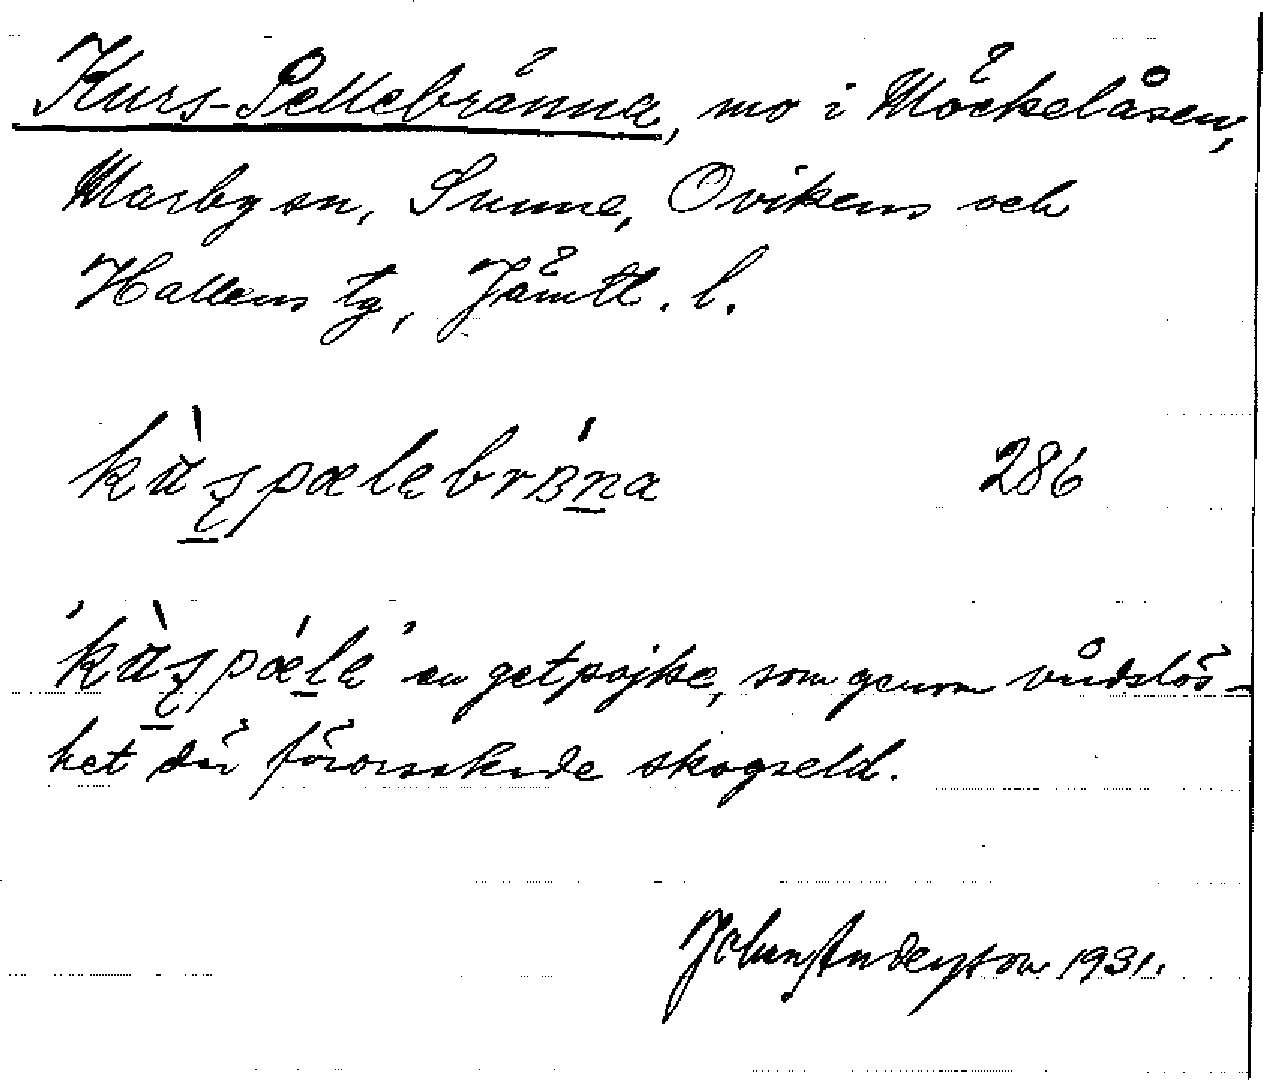 Kurs-Pellebränna, mo i Möckelåsen,
Marby sn, Sunne, Ovikens och
Hallens tg, Jämtl. l.
286
en getpojke, som genom vådslös-
het där förorsakade skogseld.
John Andersson 1931.